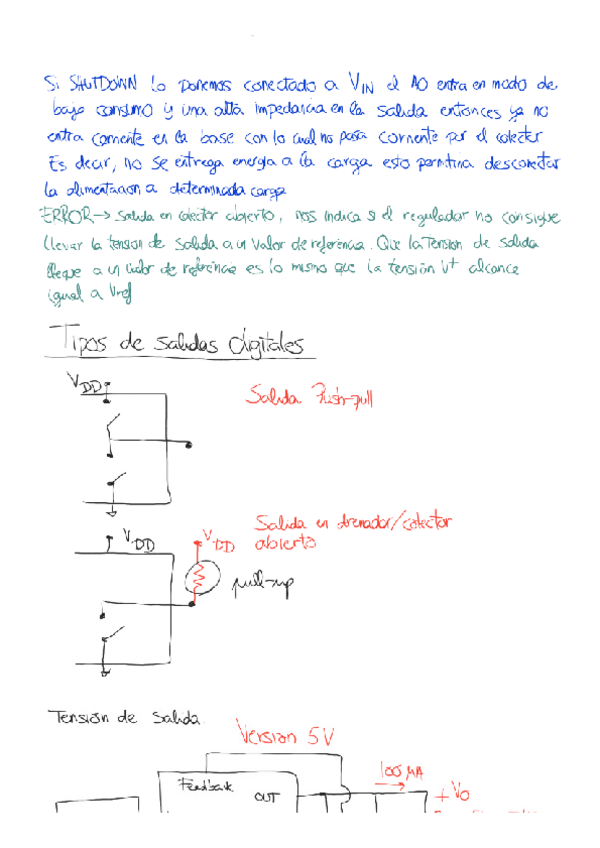 Si SHUTDOWN lo ponemos conectado a VIN el AO entra en modo de
bajo consumo y una alta impedancia en la salida entonces ya no
entra corriente en la base con lo cual no pasa corriente por el colector
Es decir, no se entrega energia a la carga esto permitiria desconectar
la alimentacion a determinada carga
ERROR → Salida en colector abierto, nos indica si el regulador no consigue
llevar la tension de salida a un valor de referencia. Que la Tension de salida
llegue a un valor de referencia es lo mismo que la tensión V+ alcance
igual a Vref
Tipos de salidas digitales
VDD
Salida Push-pull
VDD
VDD
Salida en drenador/colector
abierto
pull-up
Tensión de Salida
Version 5V
100 mA
Feedback
OUT
+Vo